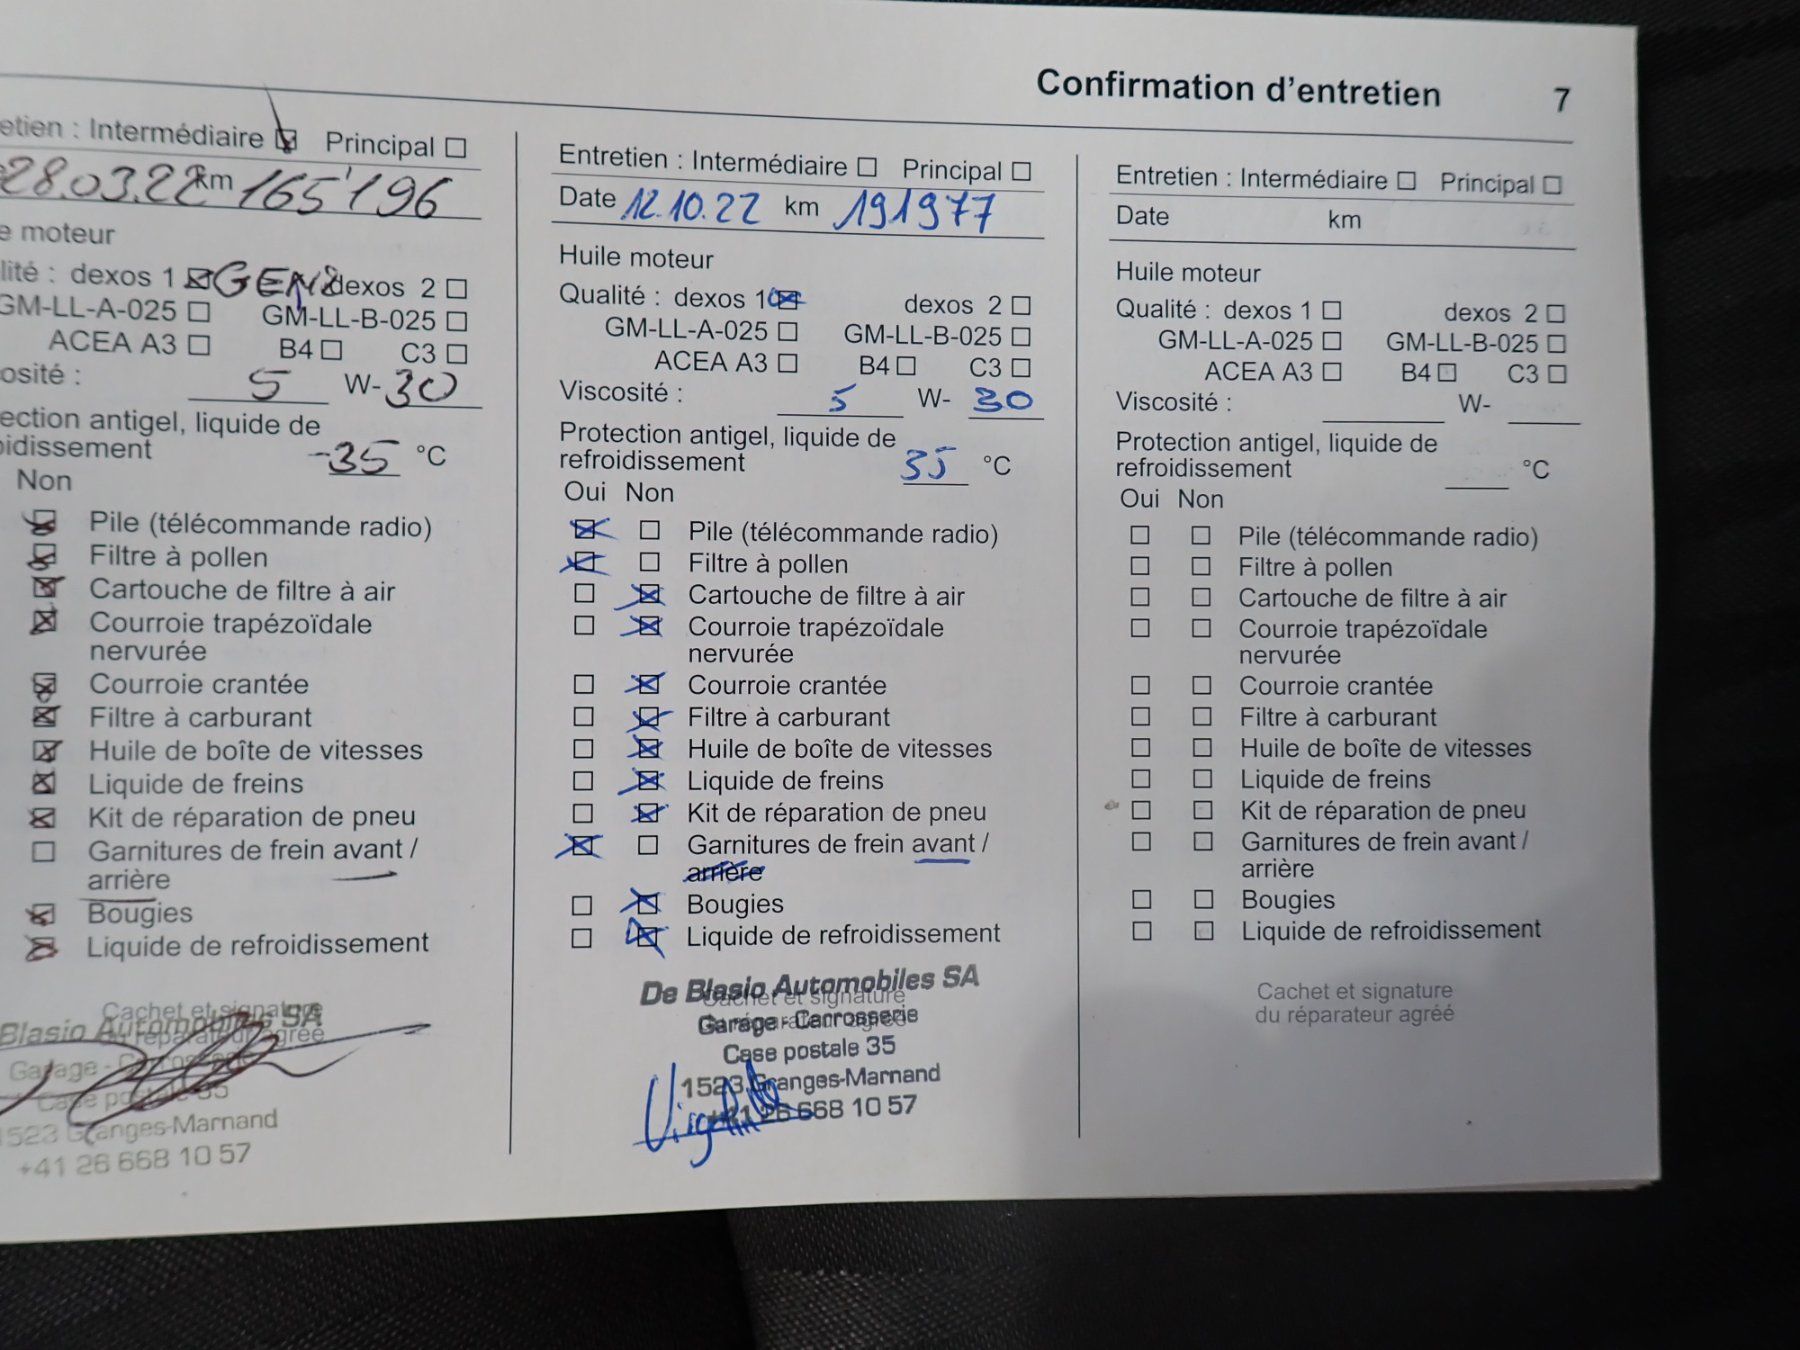 Confirmation d'entretien 7
etien : Intermédiaire ☒ Principal ☐
28.03.22 km 165'196
e moteur
lité : dexos 1 ☒ GEN2 dexos 2 ☐
GM-LL-A-025 ☐ GM-LL-B-025 ☐
ACEA A3 ☐ B4 ☐ C3 ☐
osité : 5 W- 30
ection antigel, liquide de
oidissement -35 °C
Non
☒ Pile (télécommande radio)
☒ Filtre à pollen
☒ Cartouche de filtre à air
☒ Courroie trapézoïdale
nervurée
☒ Courroie crantée
☒ Filtre à carburant
☒ Huile de boîte de vitesses
☒ Liquide de freins
☒ Kit de réparation de pneu
☐ Garnitures de frein avant /
arrière
☒ Bougies
☒ Liquide de refroidissement
Cachet et signature
Blasio Automobiles SA
du réparateur agréé
Garage - Carrosserie
Case postale 35
1523 Granges-Marnand
+41 26 668 10 57
Entretien : Intermédiaire ☐ Principal ☐
Date 12.10.22 km 191977
Huile moteur
Qualité : dexos 1 ☒ dexos 2 ☐
GM-LL-A-025 ☐ GM-LL-B-025 ☐
ACEA A3 ☐ B4 ☐ C3 ☐
Viscosité : 5 W- 30
Protection antigel, liquide de
refroidissement 35 °C
Oui Non
☒ ☐ Pile (télécommande radio)
☒ ☐ Filtre à pollen
☐ ☒ Cartouche de filtre à air
☐ ☒ Courroie trapézoïdale
nervurée
☐ ☒ Courroie crantée
☐ ☒ Filtre à carburant
☐ ☒ Huile de boîte de vitesses
☐ ☒ Liquide de freins
☐ ☒ Kit de réparation de pneu
☒ ☐ Garnitures de frein avant /
arrière
☐ ☒ Bougies
☐ ☒ Liquide de refroidissement
De Blasio Automobiles SA
Cachet et signature
Garage - Carrosserie
du réparateur agréé
Case postale 35
1523 Granges-Marnand
+41 26 668 10 57
Entretien : Intermédiaire ☐ Principal ☐
Date km
Huile moteur
Qualité : dexos 1 ☐ dexos 2 ☐
GM-LL-A-025 ☐ GM-LL-B-025 ☐
ACEA A3 ☐ B4 ☐ C3 ☐
Viscosité : W-
Protection antigel, liquide de
refroidissement °C
Oui Non
☐ ☐ Pile (télécommande radio)
☐ ☐ Filtre à pollen
☐ ☐ Cartouche de filtre à air
☐ ☐ Courroie trapézoïdale
nervurée
☐ ☐ Courroie crantée
☐ ☐ Filtre à carburant
☐ ☐ Huile de boîte de vitesses
☐ ☐ Liquide de freins
☐ ☐ Kit de réparation de pneu
☐ ☐ Garnitures de frein avant /
arrière
☐ ☐ Bougies
☐ ☐ Liquide de refroidissement
Cachet et signature
du réparateur agréé